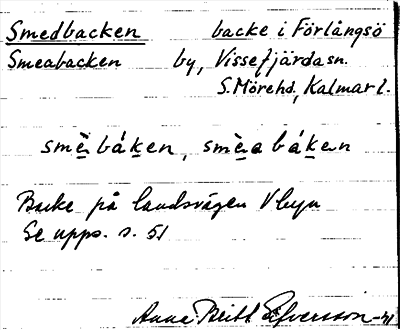 Smedbacken backe i Förlångsö
Smeabacken by, Vissefjärda sn.
S. Möre hd, Kalmar l.
smèbáken, smèabáken
Backe på landsvägen V byn
Se upps. s. 51
Anna Britt Elfversson -41